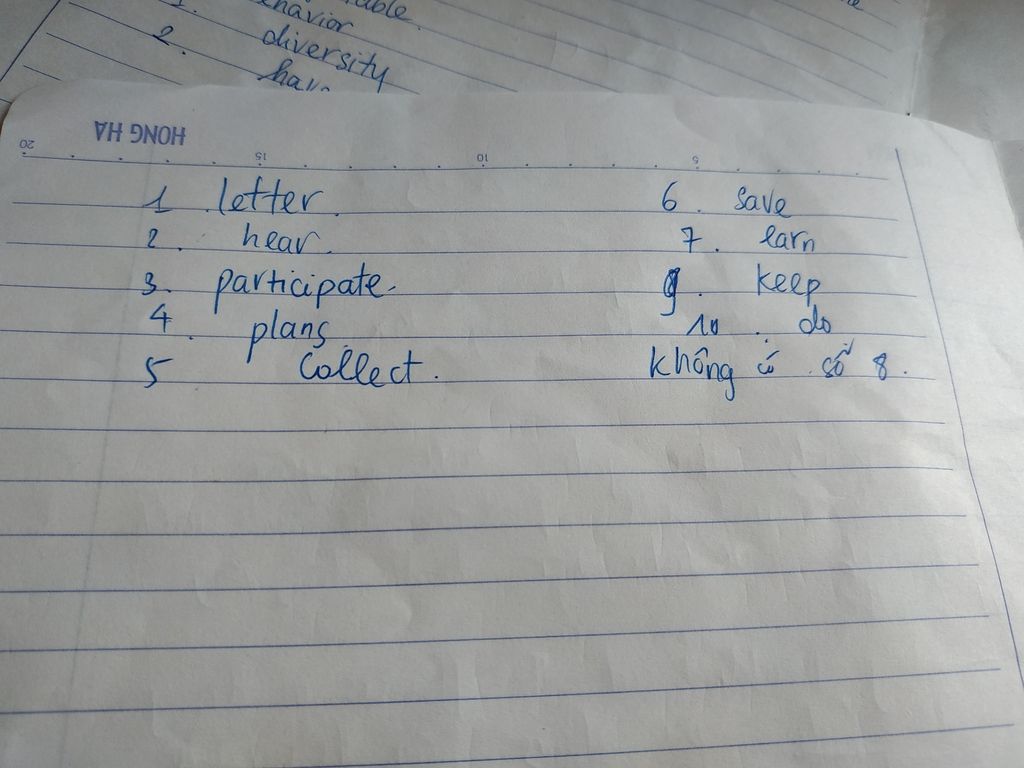 able
havior
2. diversity
HONG HA
20 15 10 5
1 letter.
2. hear.
3. participate.
4. plans
5 Collect.
6. save
7. earn
9. keep
10. do
không có số 8.